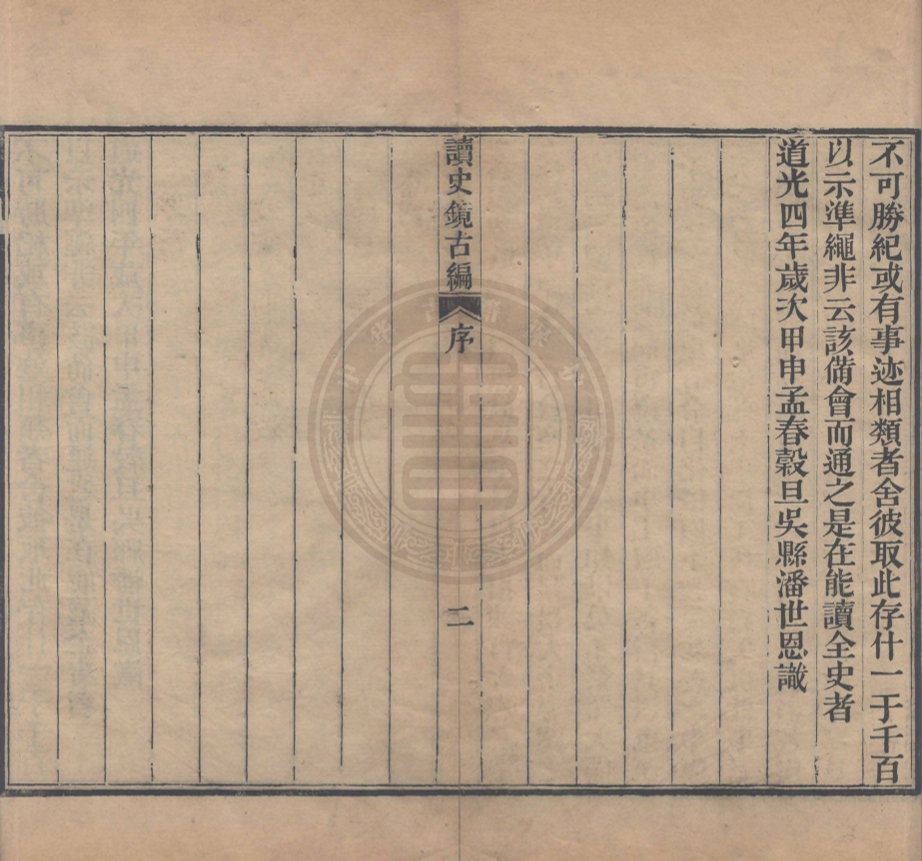 不可勝紀或有事迹相類者舍彼取此存什一于千百
以示準繩非云該備會而通之是在能讀全史者
道光四年歲次甲申孟春穀旦吳縣潘世恩識
讀史鏡古編
序
二